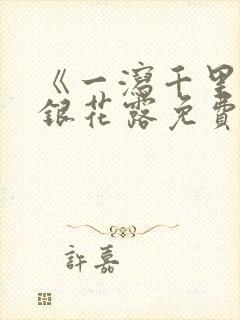 《一瀉千里
銀花露免費
許嘉